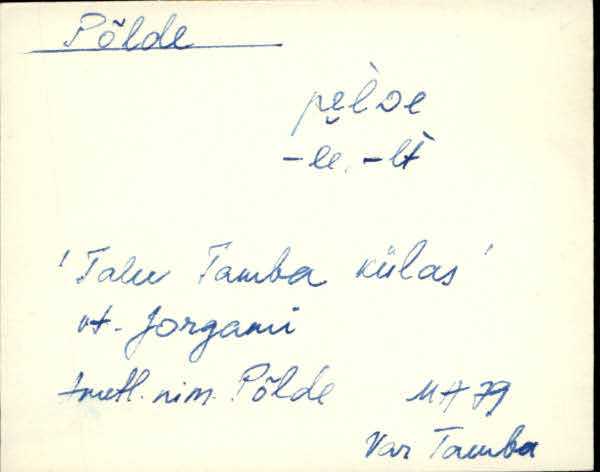 Põlde
pè̬lᴅe
-le, -lt
'Talu Tamba külas'
vt. Jorgami
Ametl. nim. Põlde MH 79
Var Tamba